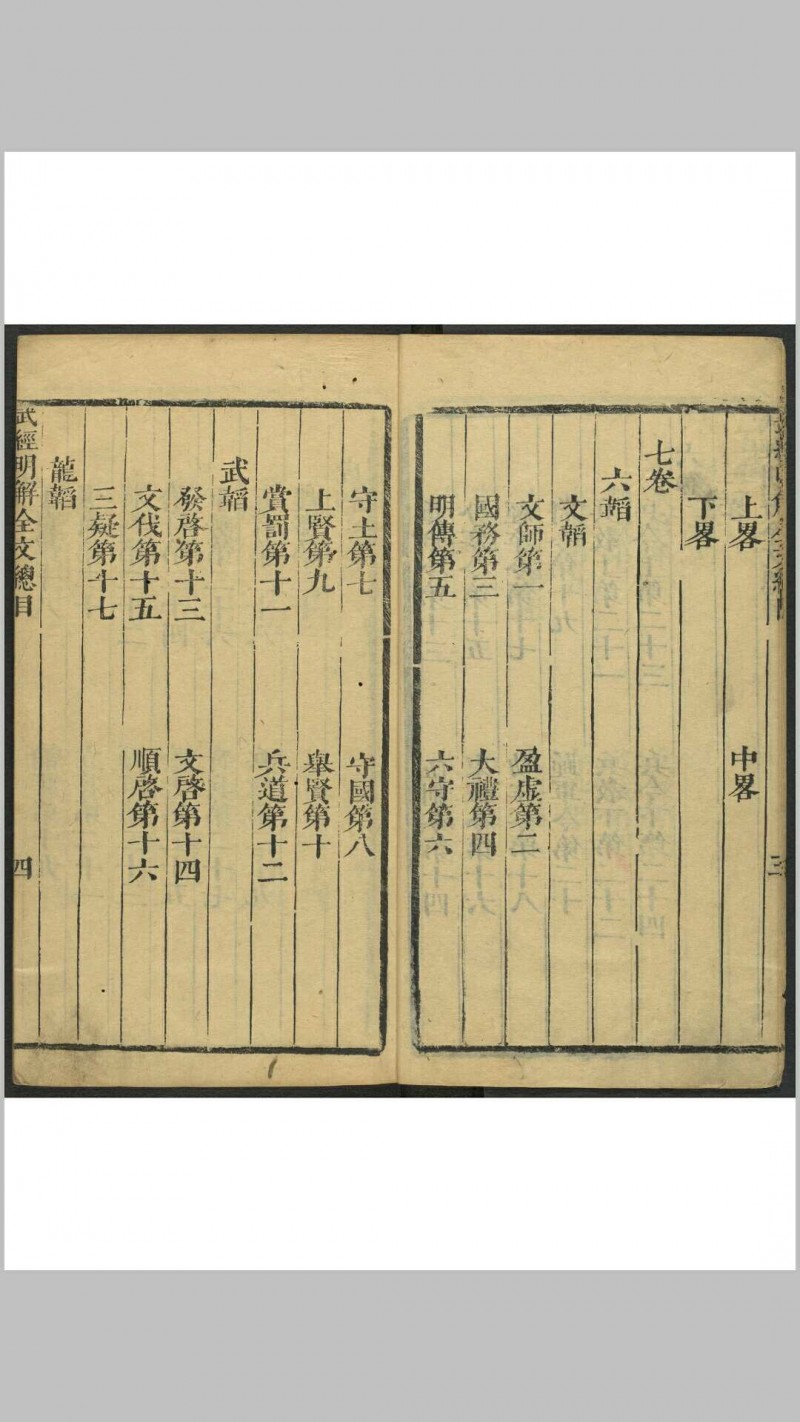 三
上畧
中畧
下畧
七卷
六韜
文韜
文師第一
盈虛第二
國務第三
大禮第四
明傳第五
六守第六
守土第七
守國第八
上賢第九
舉賢第十
賞罰第十一
兵道第十二
武韜
發啓第十三
文啓第十四
文伐第十五
順啓第十六
三疑第十七
龍韜
武經明解全文總目
四